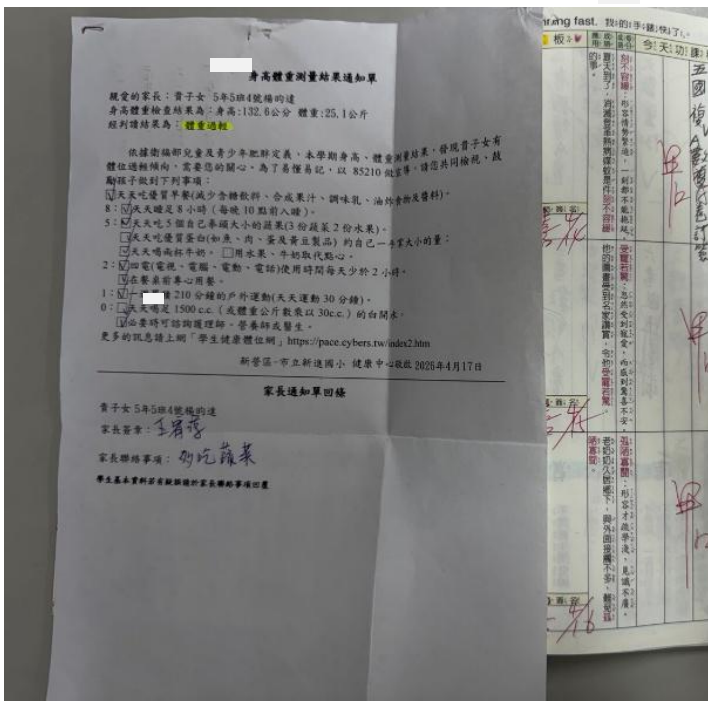 身高體重測量結果通知單
親愛的家長：貴子女 5年5班4號楊昀達
身高體重檢查結果為：身高:132.6公分 體重:25.1公斤
經判讀結果為：體重過輕
依據衛福部兒童及青少年肥胖定義，本學期身高、體重測量結果，發現貴子女有
體位過輕傾向，需要您的關心。為了易懂易記，以 85210 做宣導，請您共同檢視、鼓
勵孩子做到下列事項：
☑天天吃優質早餐(減少含糖飲料、合成果汁、調味乳、油炸食物及醬料)。
8：☑天天睡足 8 小時（每晚 10 點前入睡）。
5：☑天天吃 5 個自己拳頭大小的蔬果(3 份蔬菜 2 份水果)。
□天天吃優質蛋白(如魚、肉、蛋及黃豆製品) 約自己一手掌大小的量；
☑天天喝兩杯牛奶。 □用水果、牛奶取代點心。
2：☑四電(電視、電腦、電動、電話)使用時間每天少於 2 小時。
☑在餐桌前專心用餐。
1：☑一 210 分鐘的戶外運動(天天運動 30 分鐘)。
0：□天天喝足 1500 c.c.（或體重公斤數乘以 30c.c.）的白開水。
☑必要時可諮詢護理師、營養師或醫生。
更多的訊息請上網「學生健康體位網」https://pace.cybers.tw/index2.htm
新營區-市立新進國小 健康中心敬啟 2025年4月17日
家長通知單回條
貴子女 5年5班4號楊昀達
家長簽章：
家長聯絡事項：少吃蔬菜
學生基本資料若有疑誤請於家長聯絡事項回覆
nning fast. 我的手錶快了。
板
今天功課
刻不容緩：形容情勢緊迫，一刻都不能拖延。
夏天到了，消滅登革熱病媒蚊是件刻不容緩
的事。
受寵若驚：忽然受到寵愛，而感到驚喜不安。
他的圖畫受到名家讚賞，令他受寵若驚。
孤陋寡聞：形容才疏學淺，見識不廣。
老奶奶久居鄉下，與外面接觸不多，難免孤
陋寡聞。